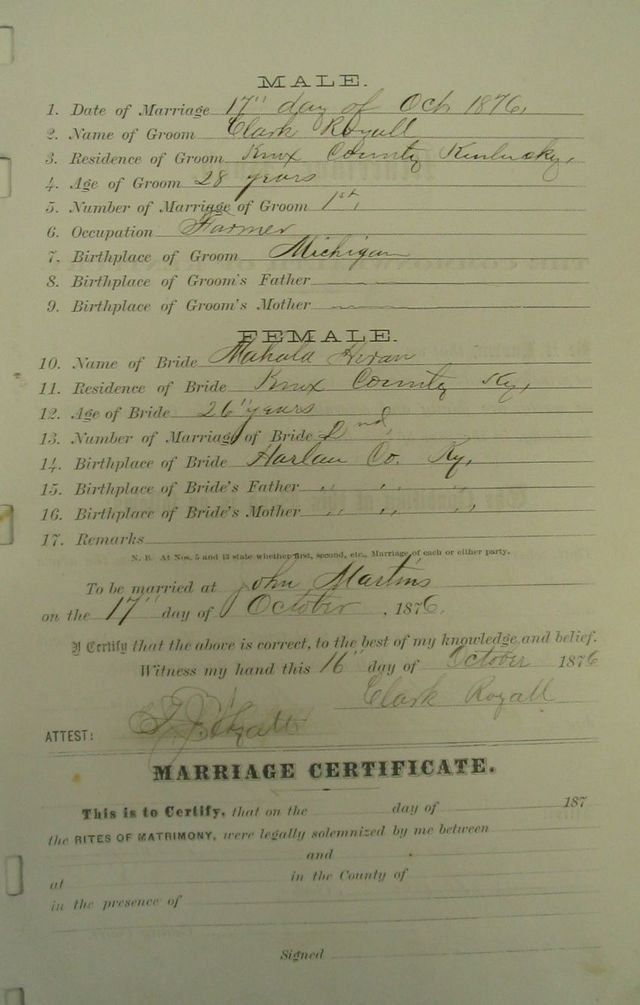 MALE.
1. Date of Marriage 17" day of Oct 1876,
2. Name of Groom Clark Royall
3. Residence of Groom Knox County Kentucky,
4. Age of Groom 28 years
5. Number of Marriage of Groom 1st,
6. Occupation Farmer
7. Birthplace of Groom Michigan
8. Birthplace of Groom's Father
9. Birthplace of Groom's Mother
FEMALE.
10. Name of Bride Mahala
11. Residence of Bride Knox County Ky,
12. Age of Bride 26" years
13. Number of Marriage of Bride 2nd,
14. Birthplace of Bride Harlan Co. Ky,
15. Birthplace of Bride's Father " " "
16. Birthplace of Bride's Mother " " "
17. Remarks
N. B. At Nos. 5 and 13 state whether first, second, etc., Marriage of each or either party.
To be married at John Martins
on the 17" day of October, 1876.
I Certify that the above is correct, to the best of my knowledge and belief.
Witness my hand this 16" day of October 1876
Clark Royall
ATTEST:
MARRIAGE CERTIFICATE.
This is to Certify, that on the day of 187
the RITES OF MATRIMONY, were legally solemnized by me between
and
at in the County of
in the presence of
Signed